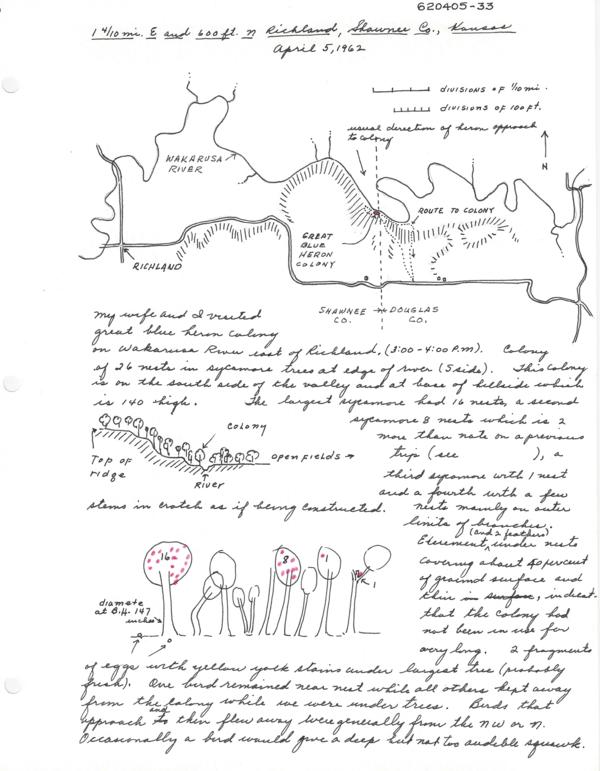 620405-33
1 4/10 mi. E and 600 ft. N Richland, Shawnee Co., Kansas
April 5, 1962
DIVISIONS OF 1/10 mi.
DIVISIONS OF 100 FT.
usual direction of heron approach
to colony
N
WAKARUSA
RIVER
ROUTE TO COLONY
GREAT
BLUE
HERON
COLONY
RICHLAND
SHAWNEE
CO.
DOUGLAS
CO.
My wife and I visited
great blue heron colony
on Wakarusa River east of Richland, (3:00-4:00 P.M). Colony
of 26 nests in sycamore trees at edge of river (S side). This colony
is on the south side of the valley and at base of hillside which
is 140 high. The largest sycamore had 16 nests, a second
sycamore 8 nests which is 2
more than note on a previous
trip (see ), a
third sycamore with 1 nest
and a fourth with a few
stems in crotch as if being constructed. Nests mainly on outer
limits of branches.
COLONY
Top of
ridge
River
open fields →
(and 2 feathers)
Excrement under nests
covering about 40 percent
of ground surface and
thin in surface, indicat-
that the colony had
not been in use for
very long. 2 fragments
16
8
1
1
diamete
at B.H. 147
inches
of eggs with yellow yolk stains under largest tree (probably
fresh). One bird remained near nest while all others kept away
from the colony while we were under trees. Birds that
approach and then flew away were generally from the NW or N.
Occasionally a bird would give a deep but not too audible squawk.